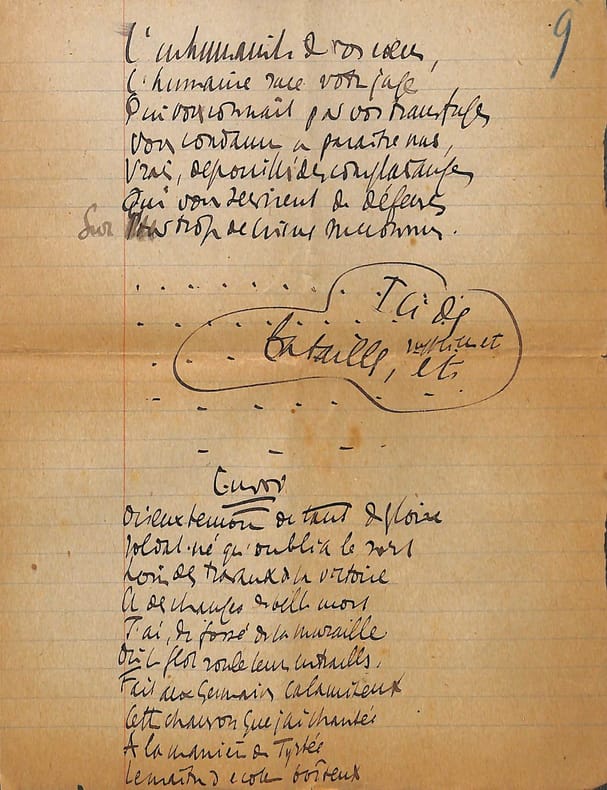 9
L'inhumanité de vos cœurs,
L'humaine race votre juge
Qui vous connaît pas vos transfuges
Vous condamne a paraître nus,
Vrais, depouillés des
Qui vous servirent de défenses
Sur trop de
Ici des
batailles, etc
Envoi
Oiseux temoin de tant de gloire
Soldat-né qu'oublia le sort
Loin des travaux de la victoire
Et des chances de belle mort
J'ai, du fossé de la muraille
Où le flot roule leurs entrailles,
Fait aux Germains calamiteux
Cette chanson que j'ai chantée
A la manière de Tyrtée
Le maître d'ecole boiteux